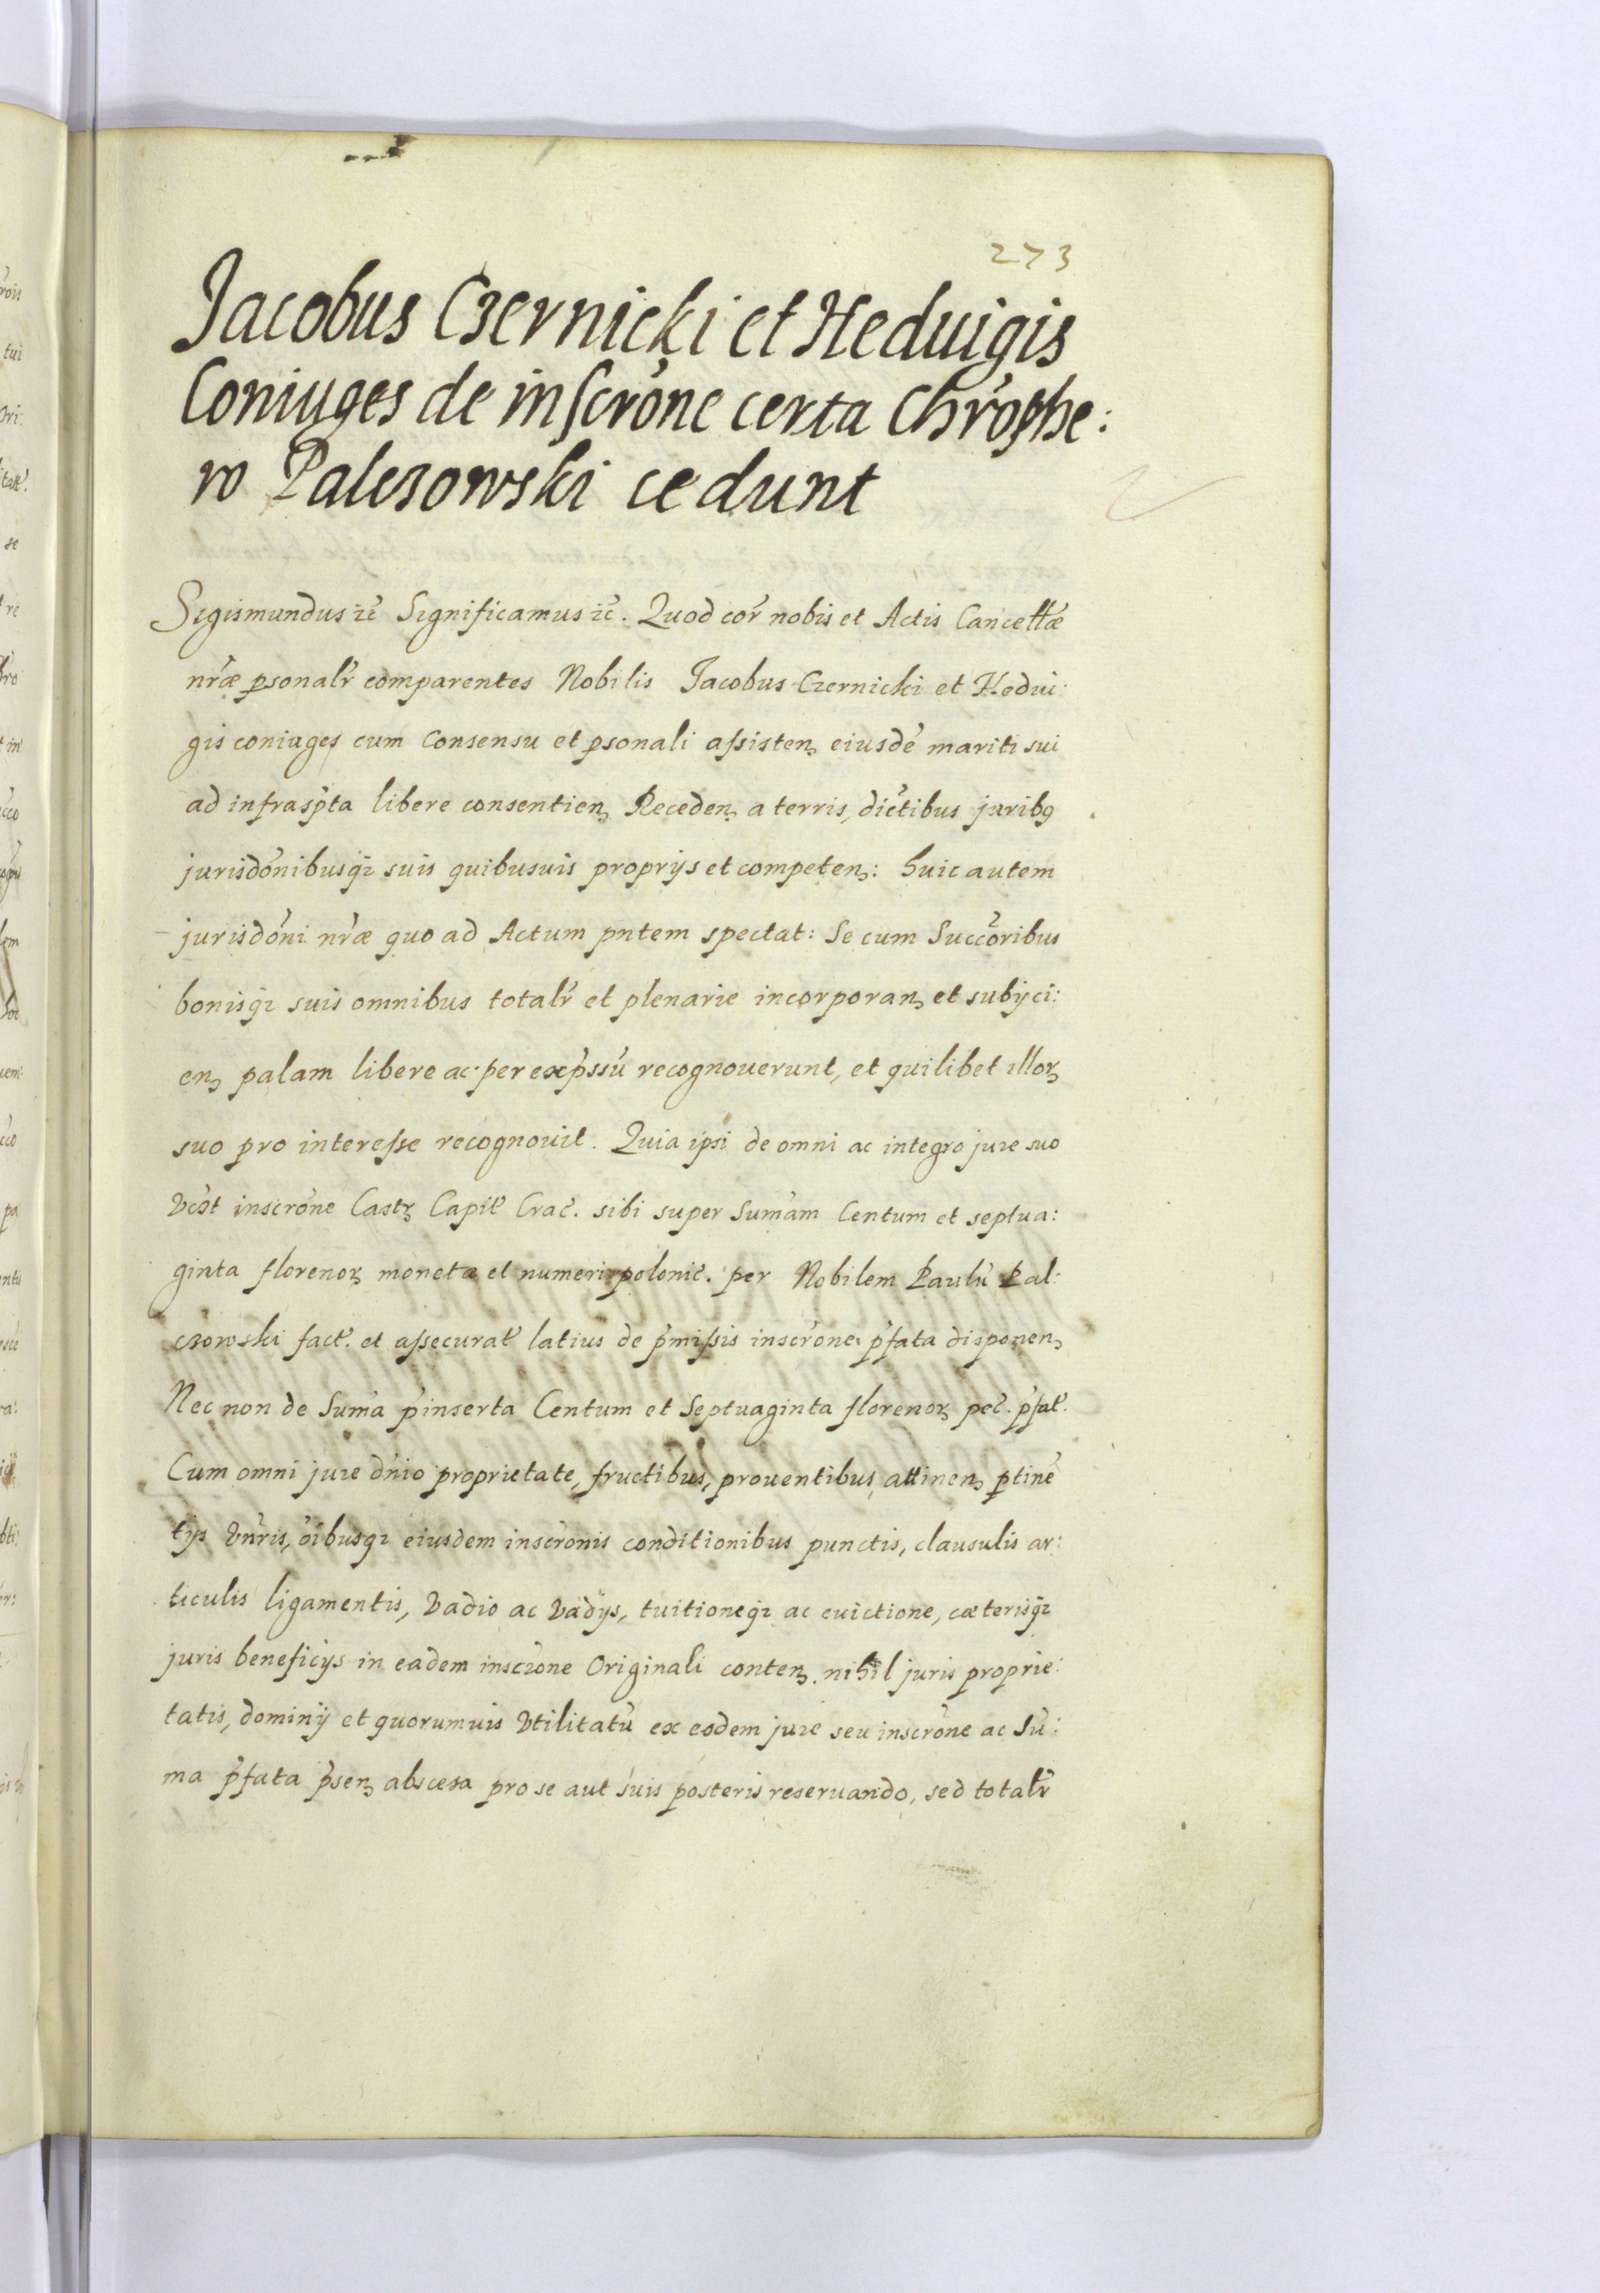 273
Jacobus Czernicki et Heduigis
Coniuges de inscrõne certa Chrõphe:
ro Palczowski cedunt
Sigismundus zc̃ Significamus zc̃. Quod cor̃ nobis et Actis Cancellæ
nr̃æ psonalr̃ comparentes Nobilis Jacobus Czernicki et Hedui:
gis coniuges cum Consensu et psonali assisten. eiusdẽ mariti sui
ad infrasp̃ta libere consentien. Receden. a terris, dic̃tibus juribꝰ
jurisdõnibusqꝫ suis quibusuis proprijs et competen: huic autem
jurisdõni nr̃æ quo ad Actum pntem spectat: Se cum Succõribus
bonisqꝫ suis omnibus totalr̃ et plenarie incorporan. et subijci:
en. palam libere ac per exp̃ssũ recognouerunt, et quilibet illoꝝ
suo pro interesse recognouit. Quia ipsi de omni ac integro jure suo
inscrõne Castꝝ Capit̃ Crac̃. sibi super Sum̃am Centum et septua:
ginta florenoꝝ moneta et numeri polonic̃. per Nobilem Paulũ Pal:
czowski fact̃. et assecurat̃ latius de p̃missis inscrõne p̃fata disponen.
Nec non de Sum̃a p̃inserta Centum et Septuaginta florenoꝝ pec̃. p̃fat̃.
Cum omni jure dñio proprietate, fructibus, prouentibus, attinen. ptinẽ
tijs vñris, õibusqꝫ eiusdem inscrõnis conditionibus punctis, clausulis ar:
ticulis ligamentis, vadio ac vadijs, tuitioneqꝫ ac euictione, cæterisqꝫ
juris beneficijs in eadem inscrõne Originali conten. nihil juris proprie:
tatis, dominij et quorumuis vtilitatũ ex eodem jure seu inscrõne ac Sũ:
ma p̃fata p̃sen. pro se aut suis posteris reseruando, sed totalr̃